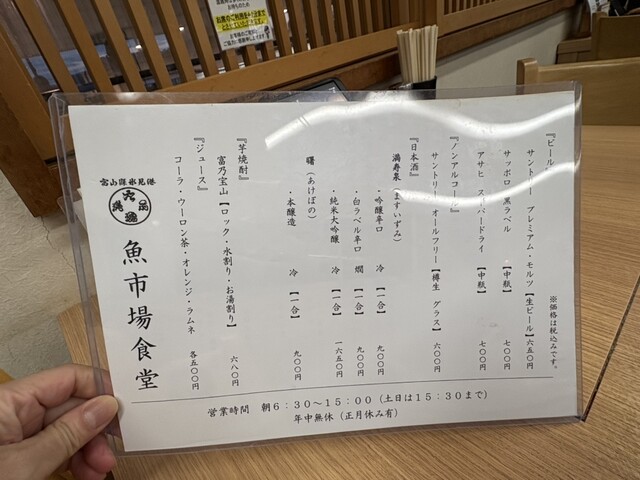 ※価格は税込みです。
『ビール』
サントリー プレミアム・モルツ【生ビール】六五〇円
サッポロ 黒ラベル 【中瓶】 七〇〇円
アサヒ スーパードライ 【中瓶】 七〇〇円
『ノンアルコール』
サントリー オールフリー【樽生 グラス】 六〇〇円
『日本酒』
満寿泉(ますいずみ)
・吟醸辛口 冷 【一合】 九〇〇円
・白ラベル辛口 燗 【一合】 九〇〇円
・純米大吟醸 冷 【一合】 一六五〇円
曙(あけぼの)
・本醸造 冷 【一合】 九〇〇円
『芋焼酎』
富乃宝山【ロック・水割り・お湯割り】 六八〇円
『ジュース』
コーラ・ウーロン茶・オレンジ・ラムネ 各五〇〇円
富山縣氷見港
魚市場食堂
営業時間 朝6:30~15:00(土日は15:30まで)
年中無休(正月休み有)